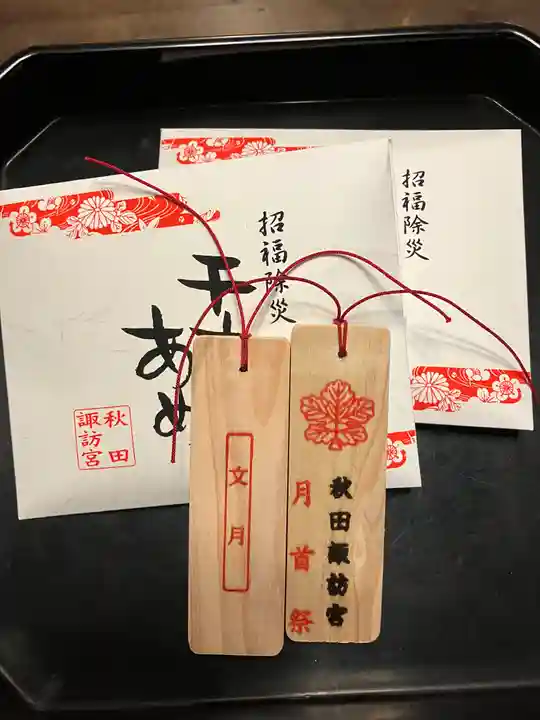 招福除災
招福除災
あめ
秋田
諏訪宮
文月
秋田諏訪宮
月首祭